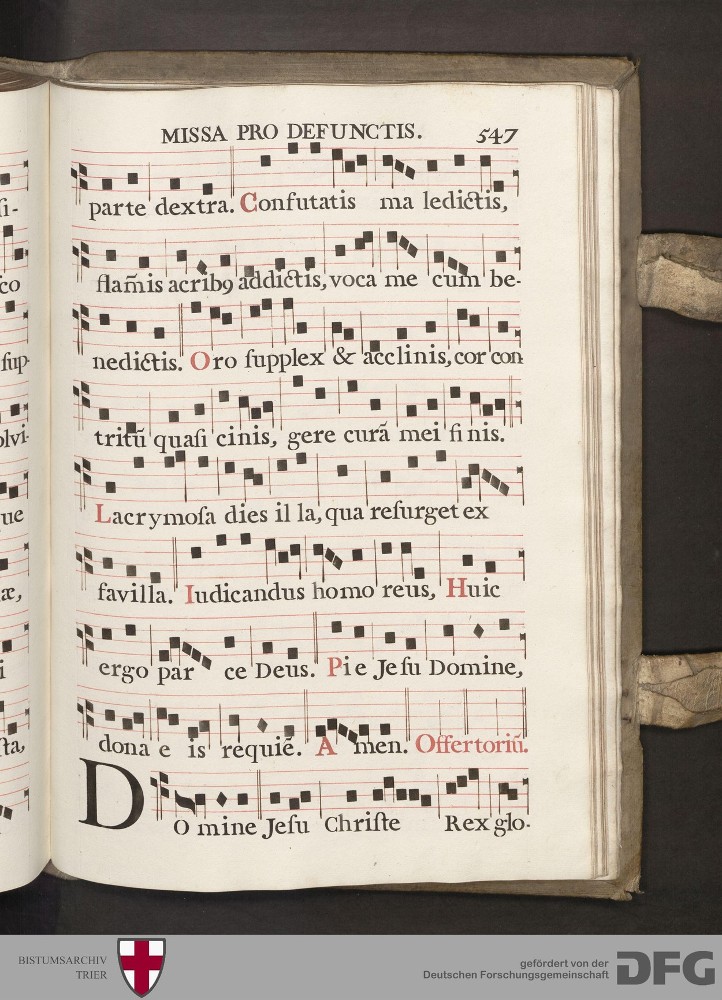 MISSA PRO DEFUNCTIS. 547
parte dextra. Confutatis ma ledictis,
flam̃is acribꝯ addictis, voca me cum be-
nedictis. Oro ſupplex & acclinis, cor con
tritũ quaſi cinis, gere curã mei fi nis.
Lacrymoſa dies il la, qua reſurget ex
favilla. Iudicandus homo reus, Huic
ergo par ce Deus. Pi e Jeſu Domine,
dona e is requiẽ. A men. Offertoriũ.
DO mine Jeſu Chriſte Rex glo-
ſi-
co
ſup-
olvi-
ue
æ,
i
ſta,
BISTUMSARCHIV
TRIER
gefördert von der
Deutschen Forschungsgemeinschaft
DFG